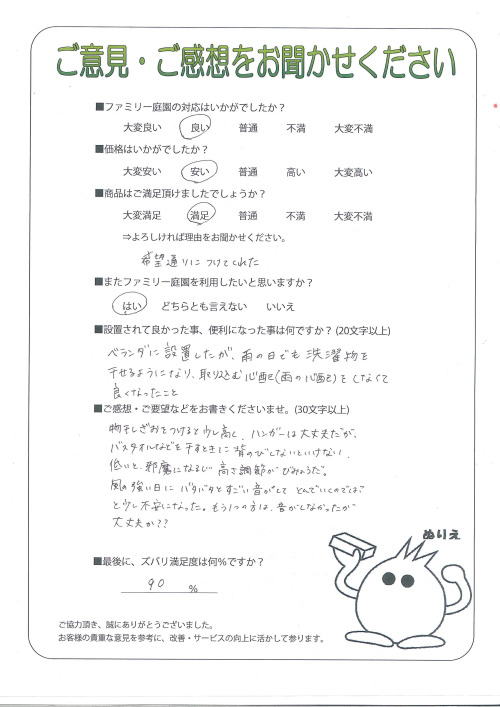 ご意見・ご感想をお聞かせください
■ファミリー庭園の対応はいかがでしたか？
大変良い 良い 普通 不満 大変不満
■価格はいかがでしたか？
大変安い 安い 普通 高い 大変高い
■商品はご満足頂けましたでしょうか？
大変満足 満足 普通 不満 大変不満
⇒よろしければ理由をお聞かせください。
希望通りにつけてくれた
■またファミリー庭園を利用したいと思いますか？
はい どちらとも言えない いいえ
■設置されて良かった事、便利になった事は何ですか？(20文字以上)
ベランダに設置したが、雨の日でも洗濯物を
干せるようになり、取り込む心配(雨の心配)をしなくて
良くなったこと
■ご感想・ご要望などをお書きくださいませ。(30文字以上)
物干しざおをつけると少し高く、ハンガーは大丈夫だが、
バスタオルなどを干すときに背のびしないといけない。
低いと、邪魔になるし 高さ調節がびみょうだ。
風の強い日に バタバタとすごい音がして とんでいくのでは
と少し不安になった。もう1つの方は、音がしなかったが
大丈夫か??
ぬりえ
■最後に、ズバリ満足度は何％ですか？
90 %
ご協力頂き、誠にありがとうございました。
お客様の貴重な意見を参考に、改善・サービスの向上に活かして参ります。